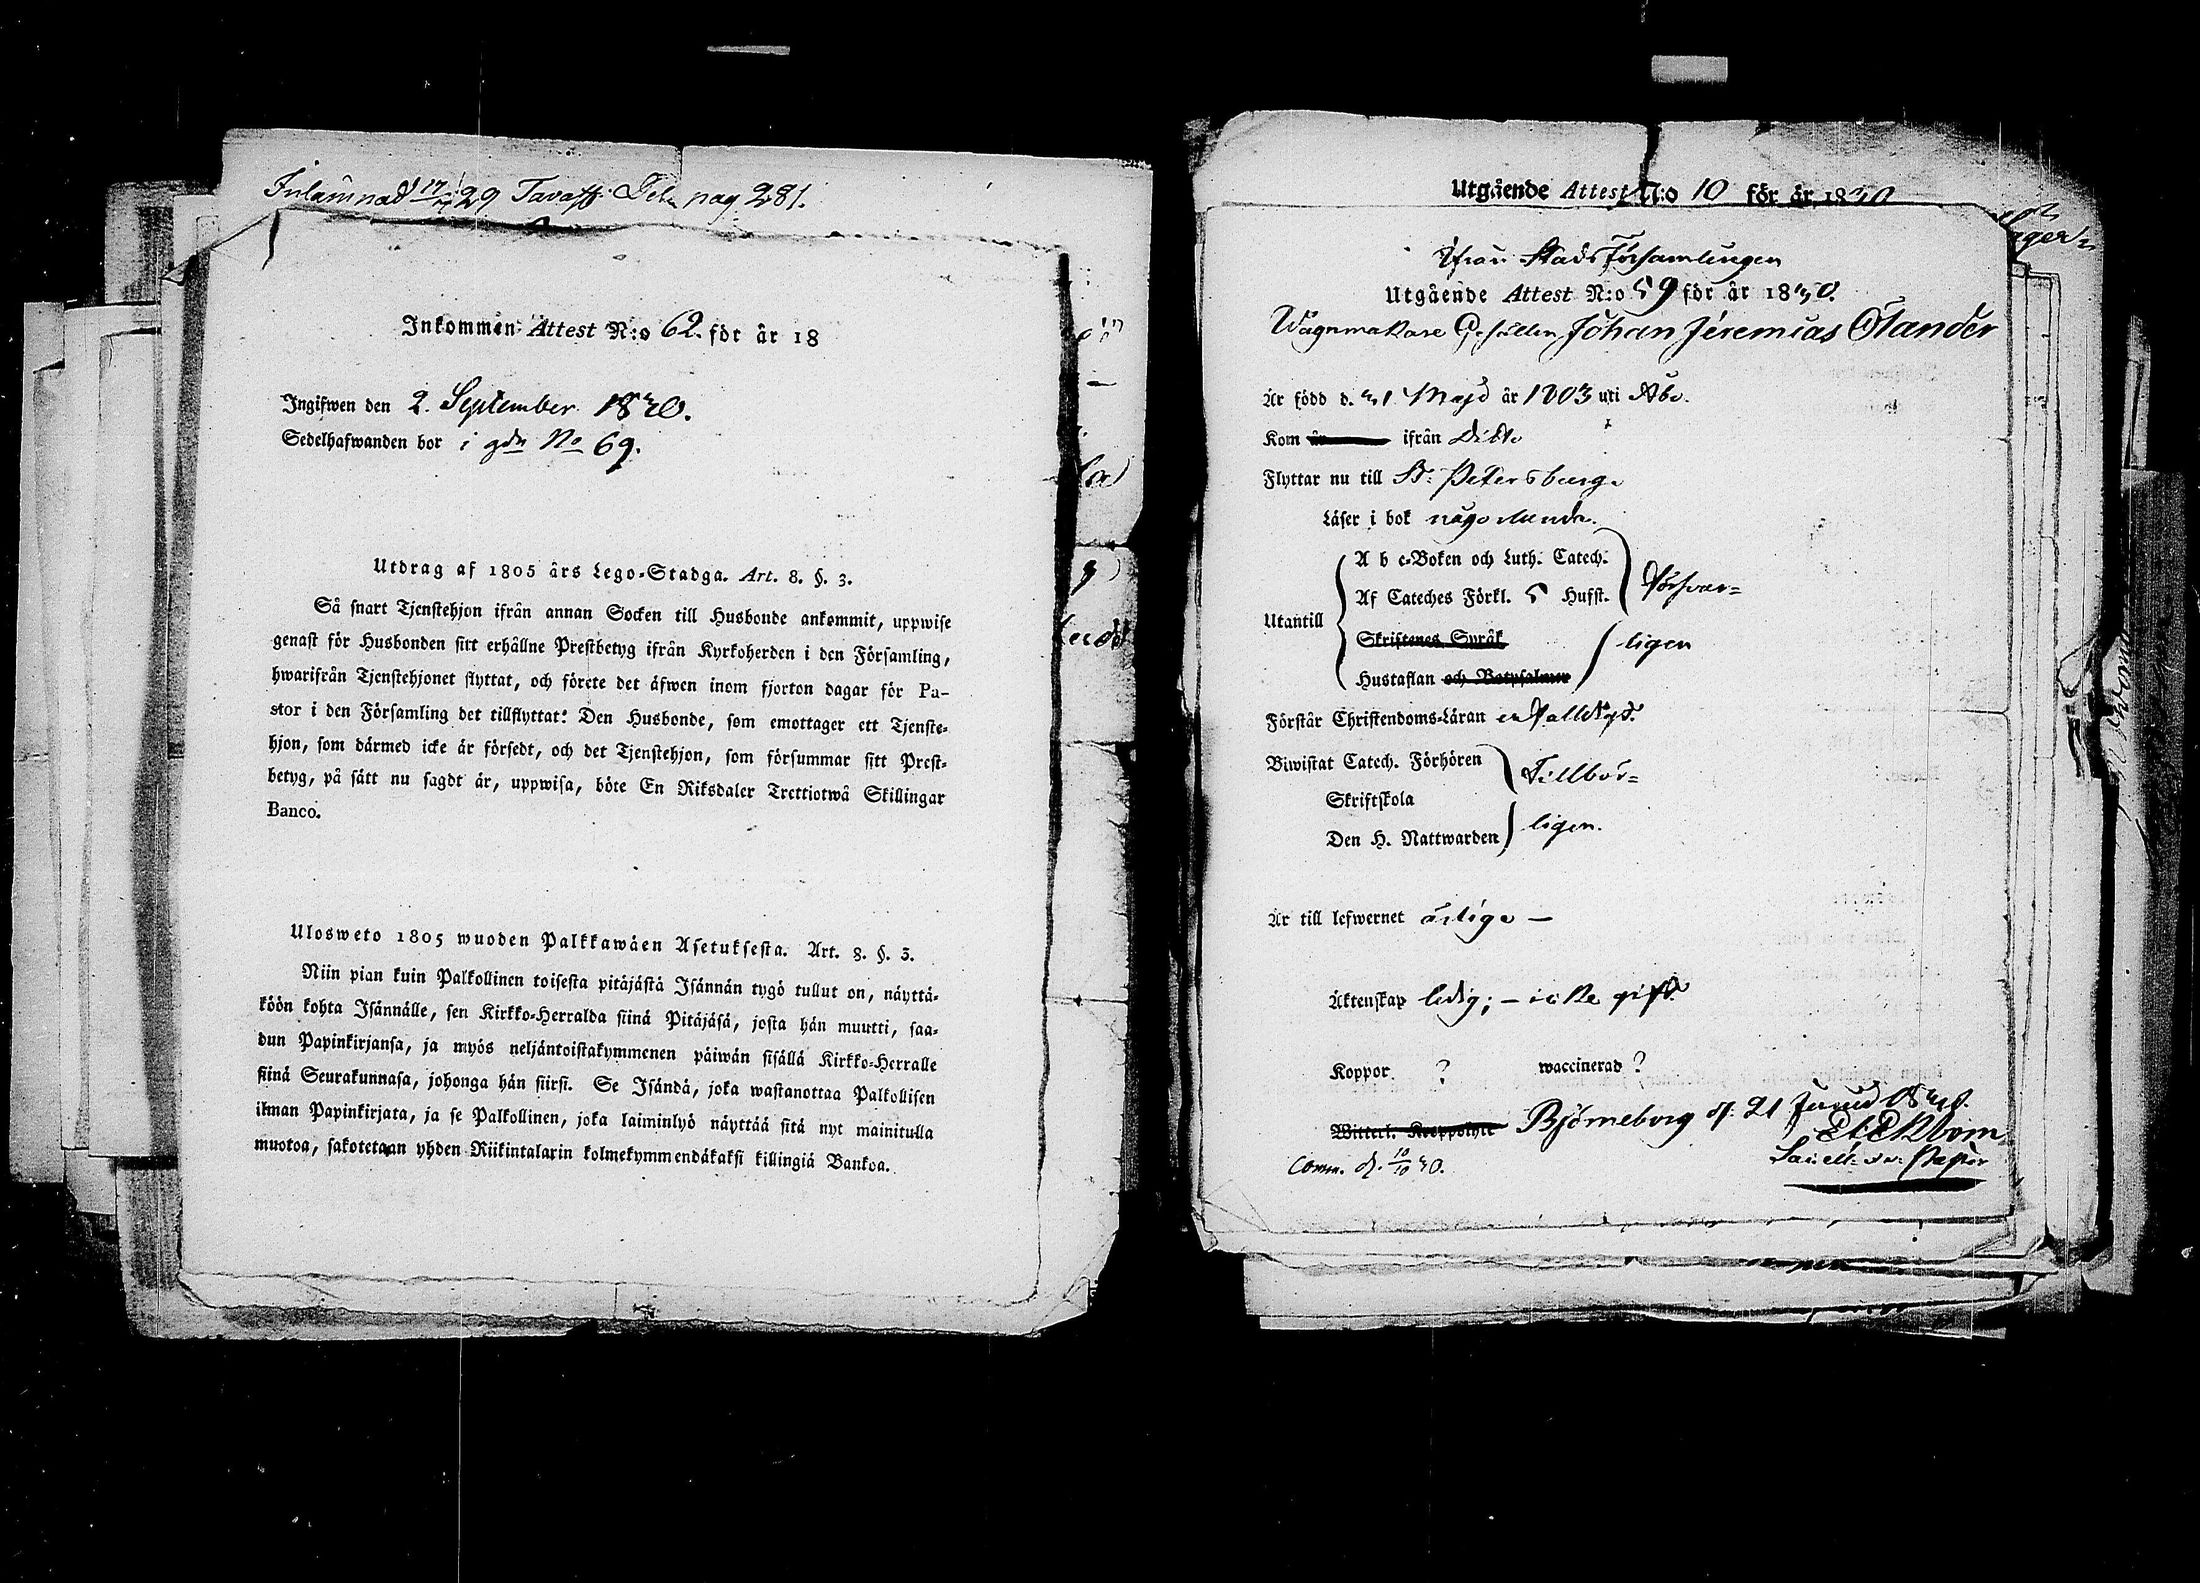 Inlämnad 17/ 29 Tavast. pag 281.
Inkommen Attest N:o 62. för år 18
Ingifwen den 2. September 1830.
Sedelhafwanden bor i gdn No 69.
Utdrag af 1805 års Lego-Stadga. Art. 8. §. 3.
Så snart Tjenstehjon ifrån annan Socken till Husbonde ankommit, uppwise
genast för Husbonden sitt erhållne Prestbetyg ifrån Kyrkoherden i den Församling,
hwarifrån Tjenstehjonet flyttat, och förete det äfwen inom fjorton dagar för Pa-
stor i den Församling det tillflyttat: Den Husbonde, som emottager ett Tjenste-
hjon, som därmed icke är försedt, och det Tjenstehjon, som försummar sitt Prest-
betyg, på sätt nu sagdt är, uppwisa, böte En Riksdaler Trettiotwå Skillingar
Banco.
Ulosweto 1805 wuoden Palkkawäen Asetuksesta. Art. 8. §. 3.
Niin pian kuin Palkollinen toisesta pitäjästä Isännän tygö tullut on, näyttä-
köön kohta Isännälle, sen Kirkko-Herralda siinä Pitäjäsä, josta hän muutti, saa-
dun Papinkirjansa, ja myös neljäntoistakymmenen päiwän sisällä Kirkko-Herralle
siinä Seurakunnasa, johonga hän siirsi. Se Isändä, joka wastanottaa Palkollisen
ilman Papinkirjata, ja se Palkollinen, joka laiminlyö näyttää sitä nyt mainitulla
muotoa, sakotetaan yhden Riikintalarin kolmekymmendäkaksi killingiä Bankoa.
Utgående Attest N:o 10 för år 1830
Ifrån Stads Församlingen
Utgående Attest N:o 59 för år 1830.
Wagnmakare Gesällen Johan Jeremias Ölander
Är född d. 31 Maji år 1803 uti Åbo.
Kom år ifrån Dito
Flyttar nu till St. Petersburg.
Läser i bok någorlunda.
Utantill
A b c-Boken och Luth. Catech.
Af Cateches Förkl. 5 Hufst.
Försvar=
Skriftenes Språk
ligen
Hustaflan och Botpsalmer
Förstår Christendoms-Läran enfalldigt.
Biwistat Catech. Förhören
Tillbör=
Skriftskola
Den H. Nattwarden
ligen.
Är till lefwernet ärlig
Äktenskap ledig; – icke gift
Koppor ? waccinerad ?
Witterl. Kroppslyte
Björneborg d. 21 Junii 1830.
Ekbom
Comm. d. 10/10 30.